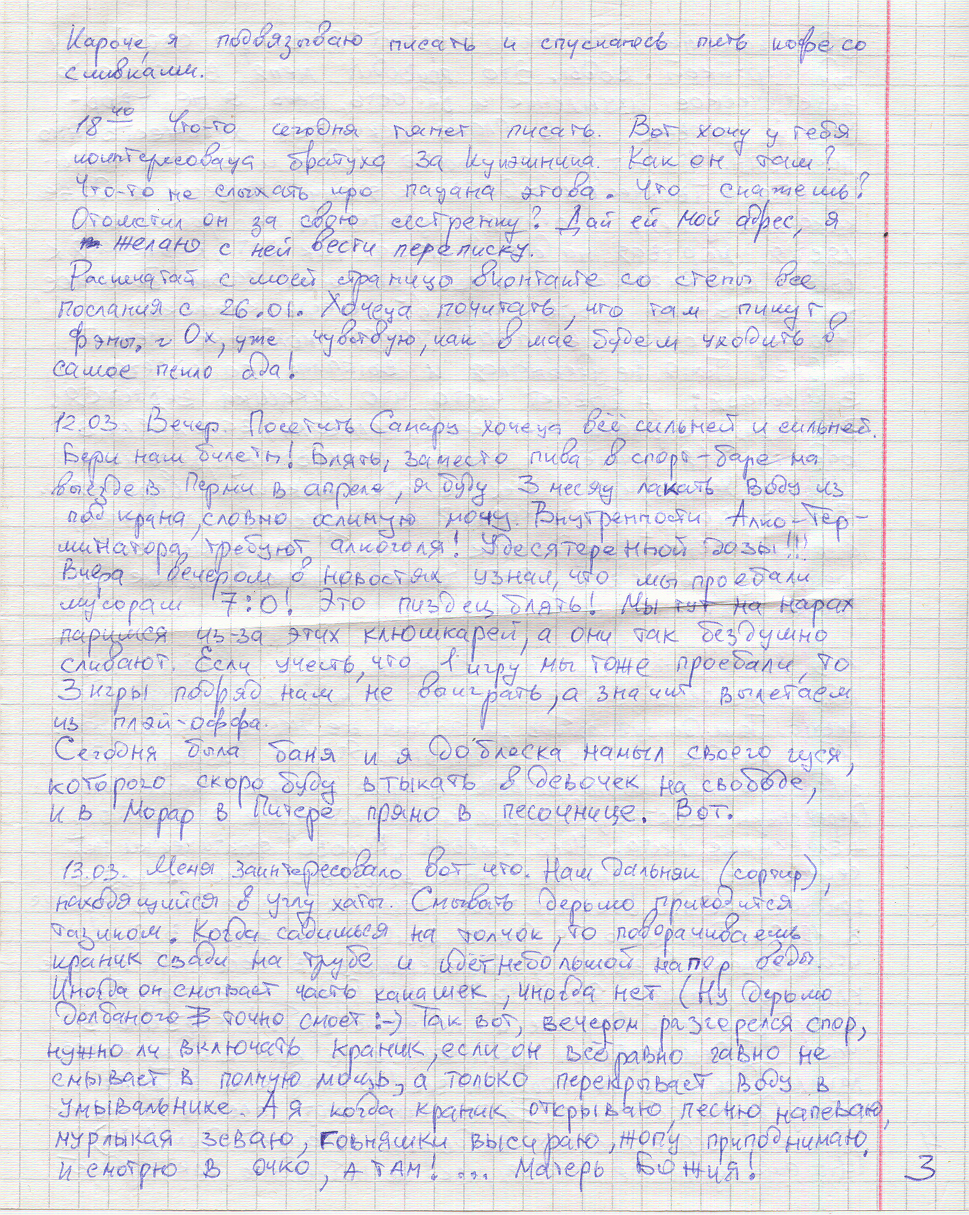 Кароче, я подвязываю писать и спускаюсь пить кофе со
сливками.
18 40 Что-то сегодня тянет писать. Вот хочу у тебя
поинтересоваца братуха за Кунэшнина. Как он там?
Что-то не слыхать про пацана этова. Что скажешь?
Отомстил он за свою сестренку? Дай ей мой адрес, я
желаю с ней вести переписку.
Распечатай с моей страницы вконтакте со стены все
послания с 26.01. Хочеца почитать, что там пишут
фэны. Ох, уже чувствую, как в мае будем уходить в
самое пекло ада!
12.03. Вечер. Посетить Самару хочеца всё сильней и сильней.
Бери нам билеты! Блять, заместо пива в спорт-баре на
выезде в Перми в апреле, я буду 3 месяц лакать воду из
под крана, словно ослиную мочу. Внутренности Алко-Тер-
минатора требуют алкоголя! Удесятеренной дозы!!!
Вчера вечером в новостях узнал, что мы проебали
мусорам 7:0! Это пиздец блять! Мы тут на нарах
паримся из-за этих клюшкарей, а они так бездушно
сливают. Если учесть, что 1 игру мы тоже проебали, то
3 игры подряд нам не выиграть, а значит вылетаем
из плэй-оффа.
Сегодня была баня и я до блеска намыл своего гуся,
которого скоро буду втыкать в девочек на свободе,
и в Морар в Питере прямо в песочнице. Вот.
13.03. Меня заинтересовало вот что. Наш дальняк (сортир),
находящийся в углу хаты. Смывать дерьмо приходится
тазиком. Когда садишься на толчок, то поворачиваешь
краник сзади на трубе и идет небольшой напор воды.
Иногда он смывает часть какашек, иногда нет (Ну дерьмо
Долбаного точно смоет :-) Так вот, вечером разгорелся спор,
нужно ли включать краник, если он всёравно гавно не
смывает в полную мощь, а только перекрывает воду в
умывальнике. А я когда краник открываю, песню напеваю,
мурлыкая зеваю, говняшки высираю, жопу приподнимаю,
и смотрю в очко, а там! ... Матерь Божия!
3